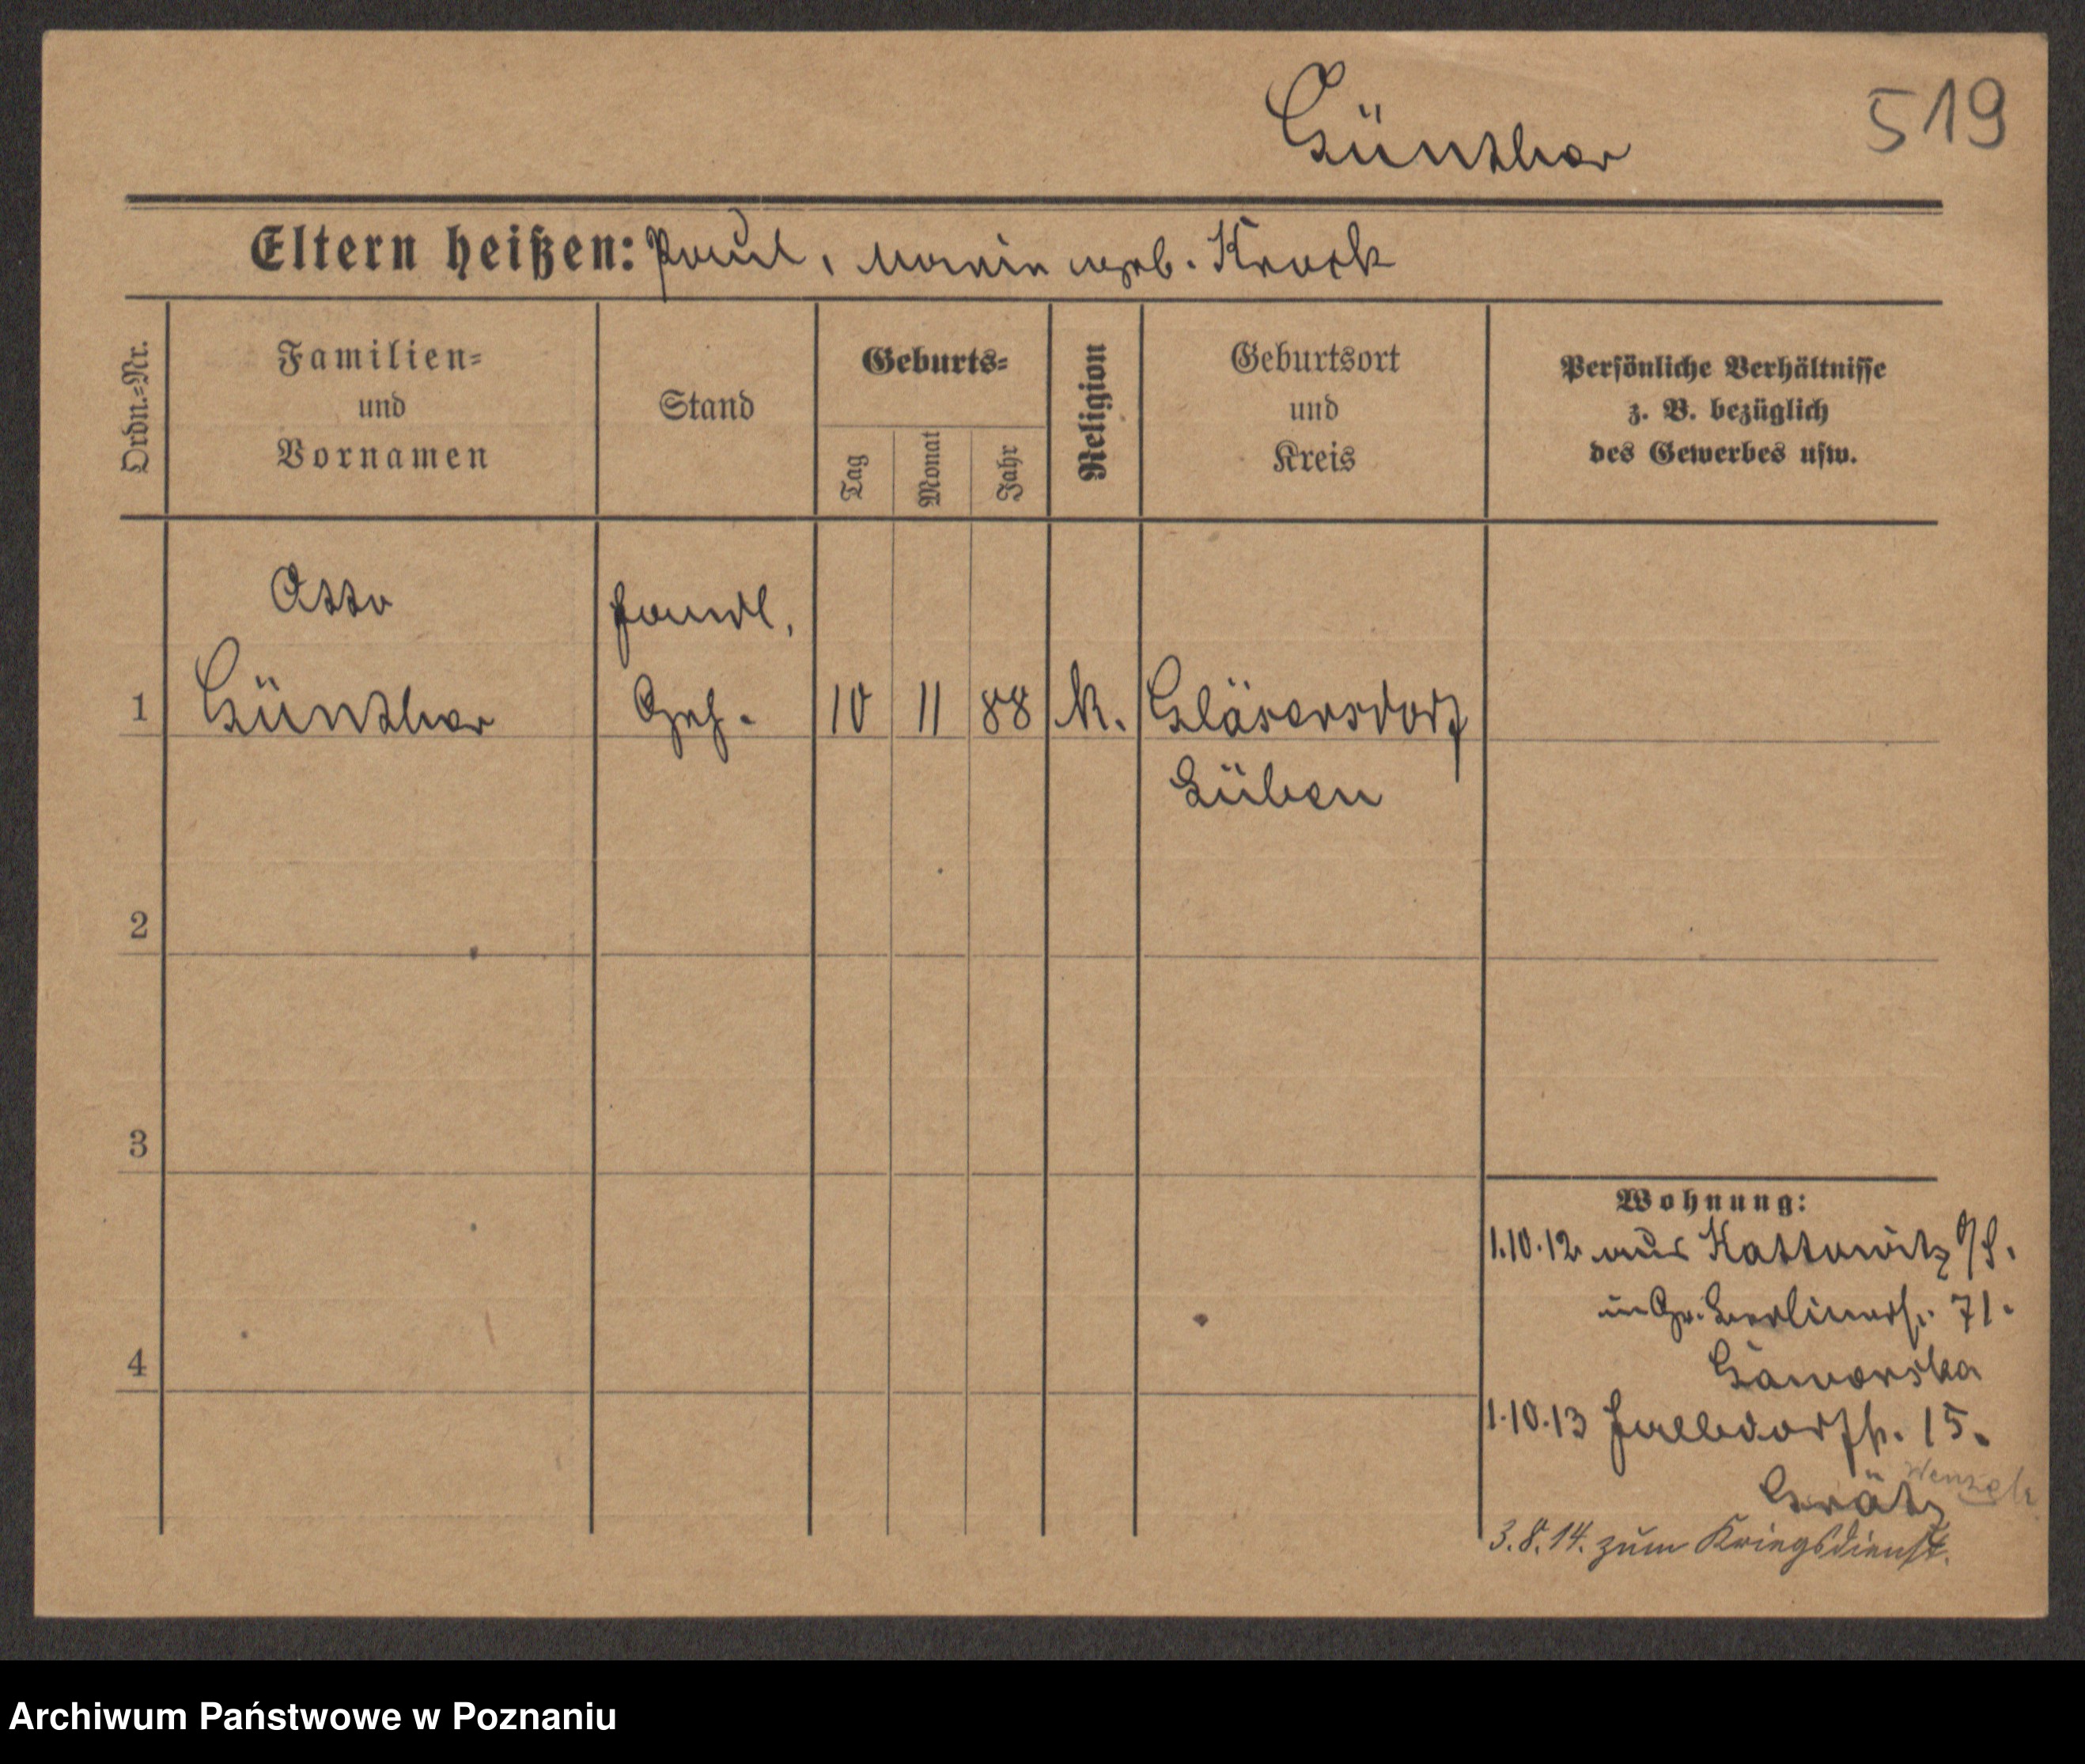 Günther
519
Eltern heißen: Paul, Maria geb. Krock
Ordn.=Nr.
Familien=
und
Vornamen
Stand
Geburts=
Tag
Monat
Jahr
Religion
Geburtsort
und
Kreis
Persönliche Verhältnisse
z. B. bezüglich
des Gewerbes usw.
Otto
Günther
Handl.
Geh.
1
10
11
88
K.
Gläsersdorf
Lüben
2
3
4
Wohnung:
1.10.12 aus Kattowitz O/S.
in Gr. Berlinerstr. 71.
Gaworska
1.10.13 Halbdorfstr. 15.
Grätz
3.8.14. zum Kriegsdienst.
Archiwum Państwowe w Poznaniu